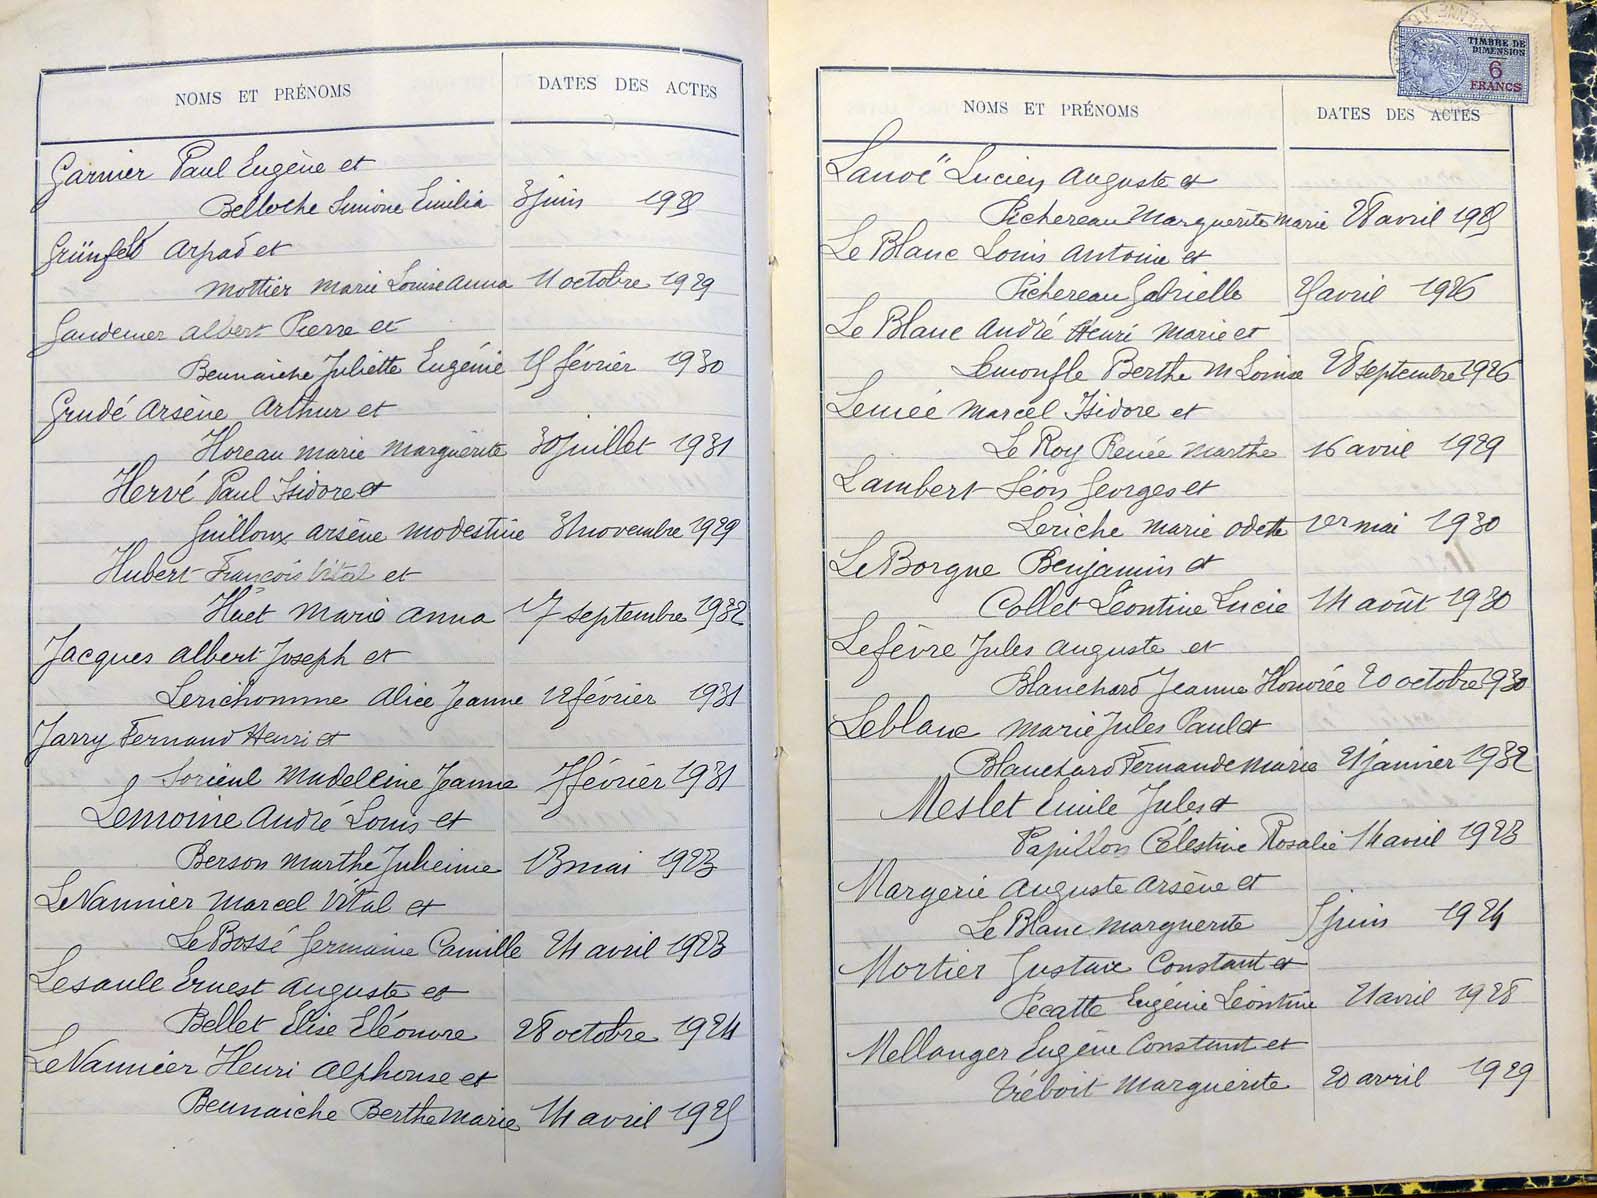 NOMS ET PRÉNOMS DATES DES ACTES
Garnier Paul Eugène et
Belloche Simone Emilia 3 juin
Grünfeld Arpad et
Mottier Marie Louise Anna 11 octobre 1929
Gandemer Albert Pierre et
Beunaiche Juliette Eugénie 15 février 1930
Grudé Arsène Arthur et
Horeau Marie Marguerite 30 juillet 1931
Hervé Paul Isidore et
Guilloux Arsène Modestine novembre 1929
Hubert François Vital et
Huet Marie Anna 17 septembre 1932
Jacques Albert Joseph et
Lerichomme Alice Jeanne 12 février 1931
Jarry Fernand Henri et
Lorieul Madeleine Jeanne 7 février 1931
Lemoine André Louis et
Berson Marthe Julienne 13 mai 1923
Le Vannier Marcel Vital et
Le Bossé Germaine Camille 24 avril 1923
Lesaule Ernest Auguste et
Bellet Elise Eléonore 28 octobre 1924
Le Vannier Henri Alphonse et
Beunaiche Berthe Marie 14 avril 1925
TIMBRE DE
DIMENSION
6
FRANCS
NOMS ET PRÉNOMS DATES DES ACTES
Lanoë Lucien Auguste et
Pichereau Marguerite Marie 28 avril 1925
Le Blanc Louis Antoine et
Pichereau Gabrielle avril 1926
Le Blanc André Henri Marie et
Lemonfle Berthe M Louise 28 septembre 1926
Lemée Marcel Isidore et
Le Roy Renée Marthe 16 avril 1929
Lambert Léon Georges et
Leriche Marie Odette 1er mai 1930
Le Borgne Benjamin et
Collet Léontine Lucie 14 août 1930
Lefèvre Jules Auguste et
Blanchard Jeanne Honorée 20 octobre 1930
Leblanc Marie Jules Paul et
Blanchard Fernande Marie 21 janvier 1932
Meslet Emile Jules et
Papillon Célestine Rosalie 14 avril 1923
Margerie Auguste Arsène et
Le Blanc Marguerite 5 juin 1924
Mortier Gustave Constant et
Pecatte Eugénie Léontine 21 avril 1928
Mellanger Eugène Constant et
Tréboit Marguerite 20 avril 1929